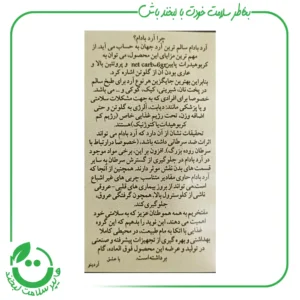 بخاطر سلامت خودت با لبخند باش
چرا آرد بادام؟
آرد بادام سالم ترین آرد جهان به حساب می آید. از
مهم ترین مزایای این محصول، می توان به
کربوهیدرات پایین net carb و پروتئین بالا و
عاری بودن آن از گلوتن اشاره کرد.
بنابراین بهترین جایگزین هر نوع آرد برای طبخ سالم
در پخت نان، شیرینی، کیک، کوکی و ... می باشد.
خصوصا برای افرادی که به جهت مشکلات سلامتی
و یا پزشکی مانند: دیابت، آلرژی به گلوتن و حتی
اضافه وزن، تحت رژیم غذایی خاص (رژیم کم
کربوهیدرات یا کتوژنیک) هستند.
تحقیقات نشان از آن دارد که آرد بادام می تواند
اثرات ضد سرطانی داشته باشد، (خصوصا در ارتباط با
سرطان روده بزرگ). افزون بر این، برخی مواد موجود
در آرد بادام در جلوگیری از گسترش سرطان به سایر
قسمت های بدن نقش موثر دارند. همچنین از آنجا که
آرد بادام حاوی مقادیر متناسب چربی های غیر اشباع
است می تواند از بروز بیماری های قلبی - عروقی
ناشی از کلسترول بالا، همچون گرفتگی عروق،
جلوگیری کند.
مفتخریم به همه هموطنان عزیز که به سلامتی خود
اهمیت می دهند، این نوید را بدهیم که این گروه
غذایی با اتکا به مام طبیعت، در محیطی کاملا
بهداشتی و بهره گیری از تجهیزات پیشرفته و صنعتی
در تولید و عرضه این محصول فوق العاده، گام
برداشته است.
با عشق
آردینو
هایپر سلامت لبخند